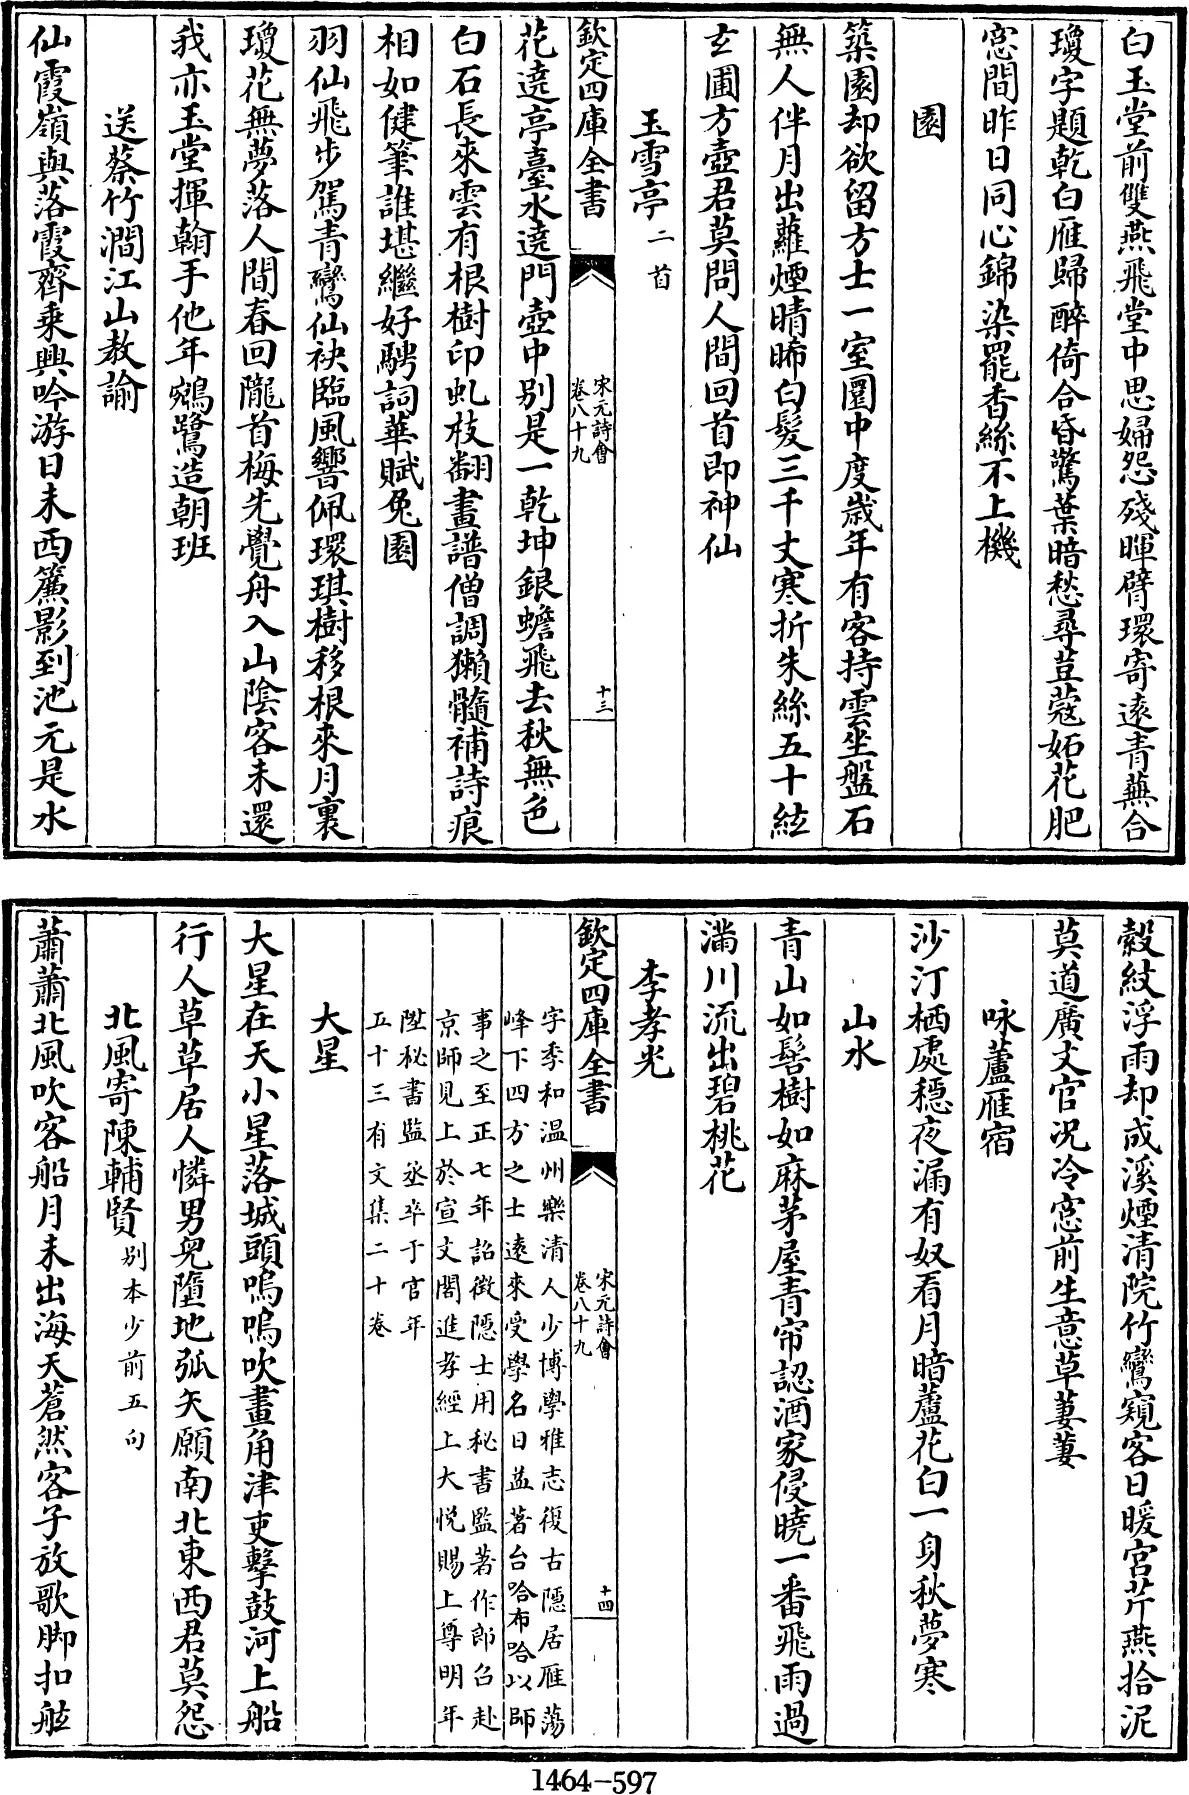 白玉堂前雙燕飛堂中思婦怨殘暉臂環寄遠青蕪合
瓊字題乾白雁歸醉倚合昏驚葉暗愁尋荳蔻妬花肥
窓間昨日同心錦染罷香絲不上機
園
築園却欲留方士一室圜中度歲年有客持雲坐盤石
無人伴月出蘿煙晴晞白髮三千丈寒折朱絲五十絃
玄圃方壺君莫問人間回首即神仙
玉雪亭二首
欽定四庫全書
宋元詩會
卷八十九
十三
花遶亭臺水遶門壺中别是一乾坤銀蟾飛去秋無色
白石長來雲有根樹印虬枝翻畫譜僧調獺髓補詩痕
相如健筆誰堪繼好騁詞華賦兔園
羽仙飛步駕青鸞仙袂臨風響佩環琪樹移根來月裏
瓊花無夢落人間春回隴首梅先覺舟入山陰客未還
我亦玉堂揮翰手他年鵷鷺造朝班
送蔡竹澗江山教諭
仙霞嶺與落霞齊乘興吟游日未西簾影到池元是水
縠紋浮雨却成溪煙清院竹鸞窺客日暖宮芹燕拾泥
莫道廣文官况冷窓前生意草萋萋
咏蘆雁宿
沙汀栖處穩夜漏有奴看月暗蘆花白一身秋夢寒
山水
青山如髻樹如麻茅屋青帘認酒家侵曉一番飛雨過
滿川流出碧桃花
李孝光
欽定四庫全書
宋元詩會
卷八十九
十四
字季和温州樂清人少博學雅志復古隱居雁蕩
峰下四方之士遠來受學名日益著台哈布哈以師
事之至正七年詔徵隱士用秘書監著作郎召赴
京師見上於宣文閣進孝經上大悦賜上尊明年
陞秘書監丞卒于官年
五十三有文集二十卷
大星
大星在天小星落城頭嗚嗚吹畫角津吏擊鼓河上船
行人草草居人憐男兒墮地弧矢願南北東西君莫怨
北風寄陳輔賢别本少前五句
蕭蕭北風吹客船月未出海天蒼然客子放歌脚扣舷
1464-597